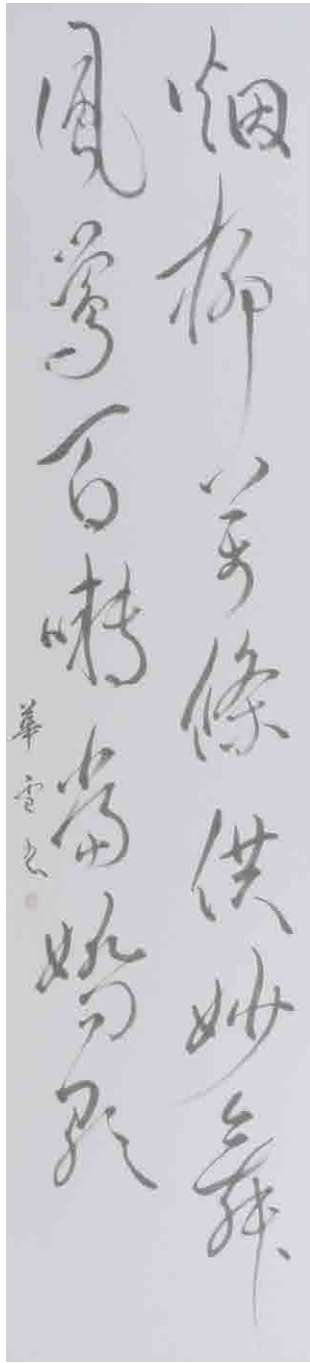 烟柳万條供妙舞
風鶯百囀當嬌歌
華雪書